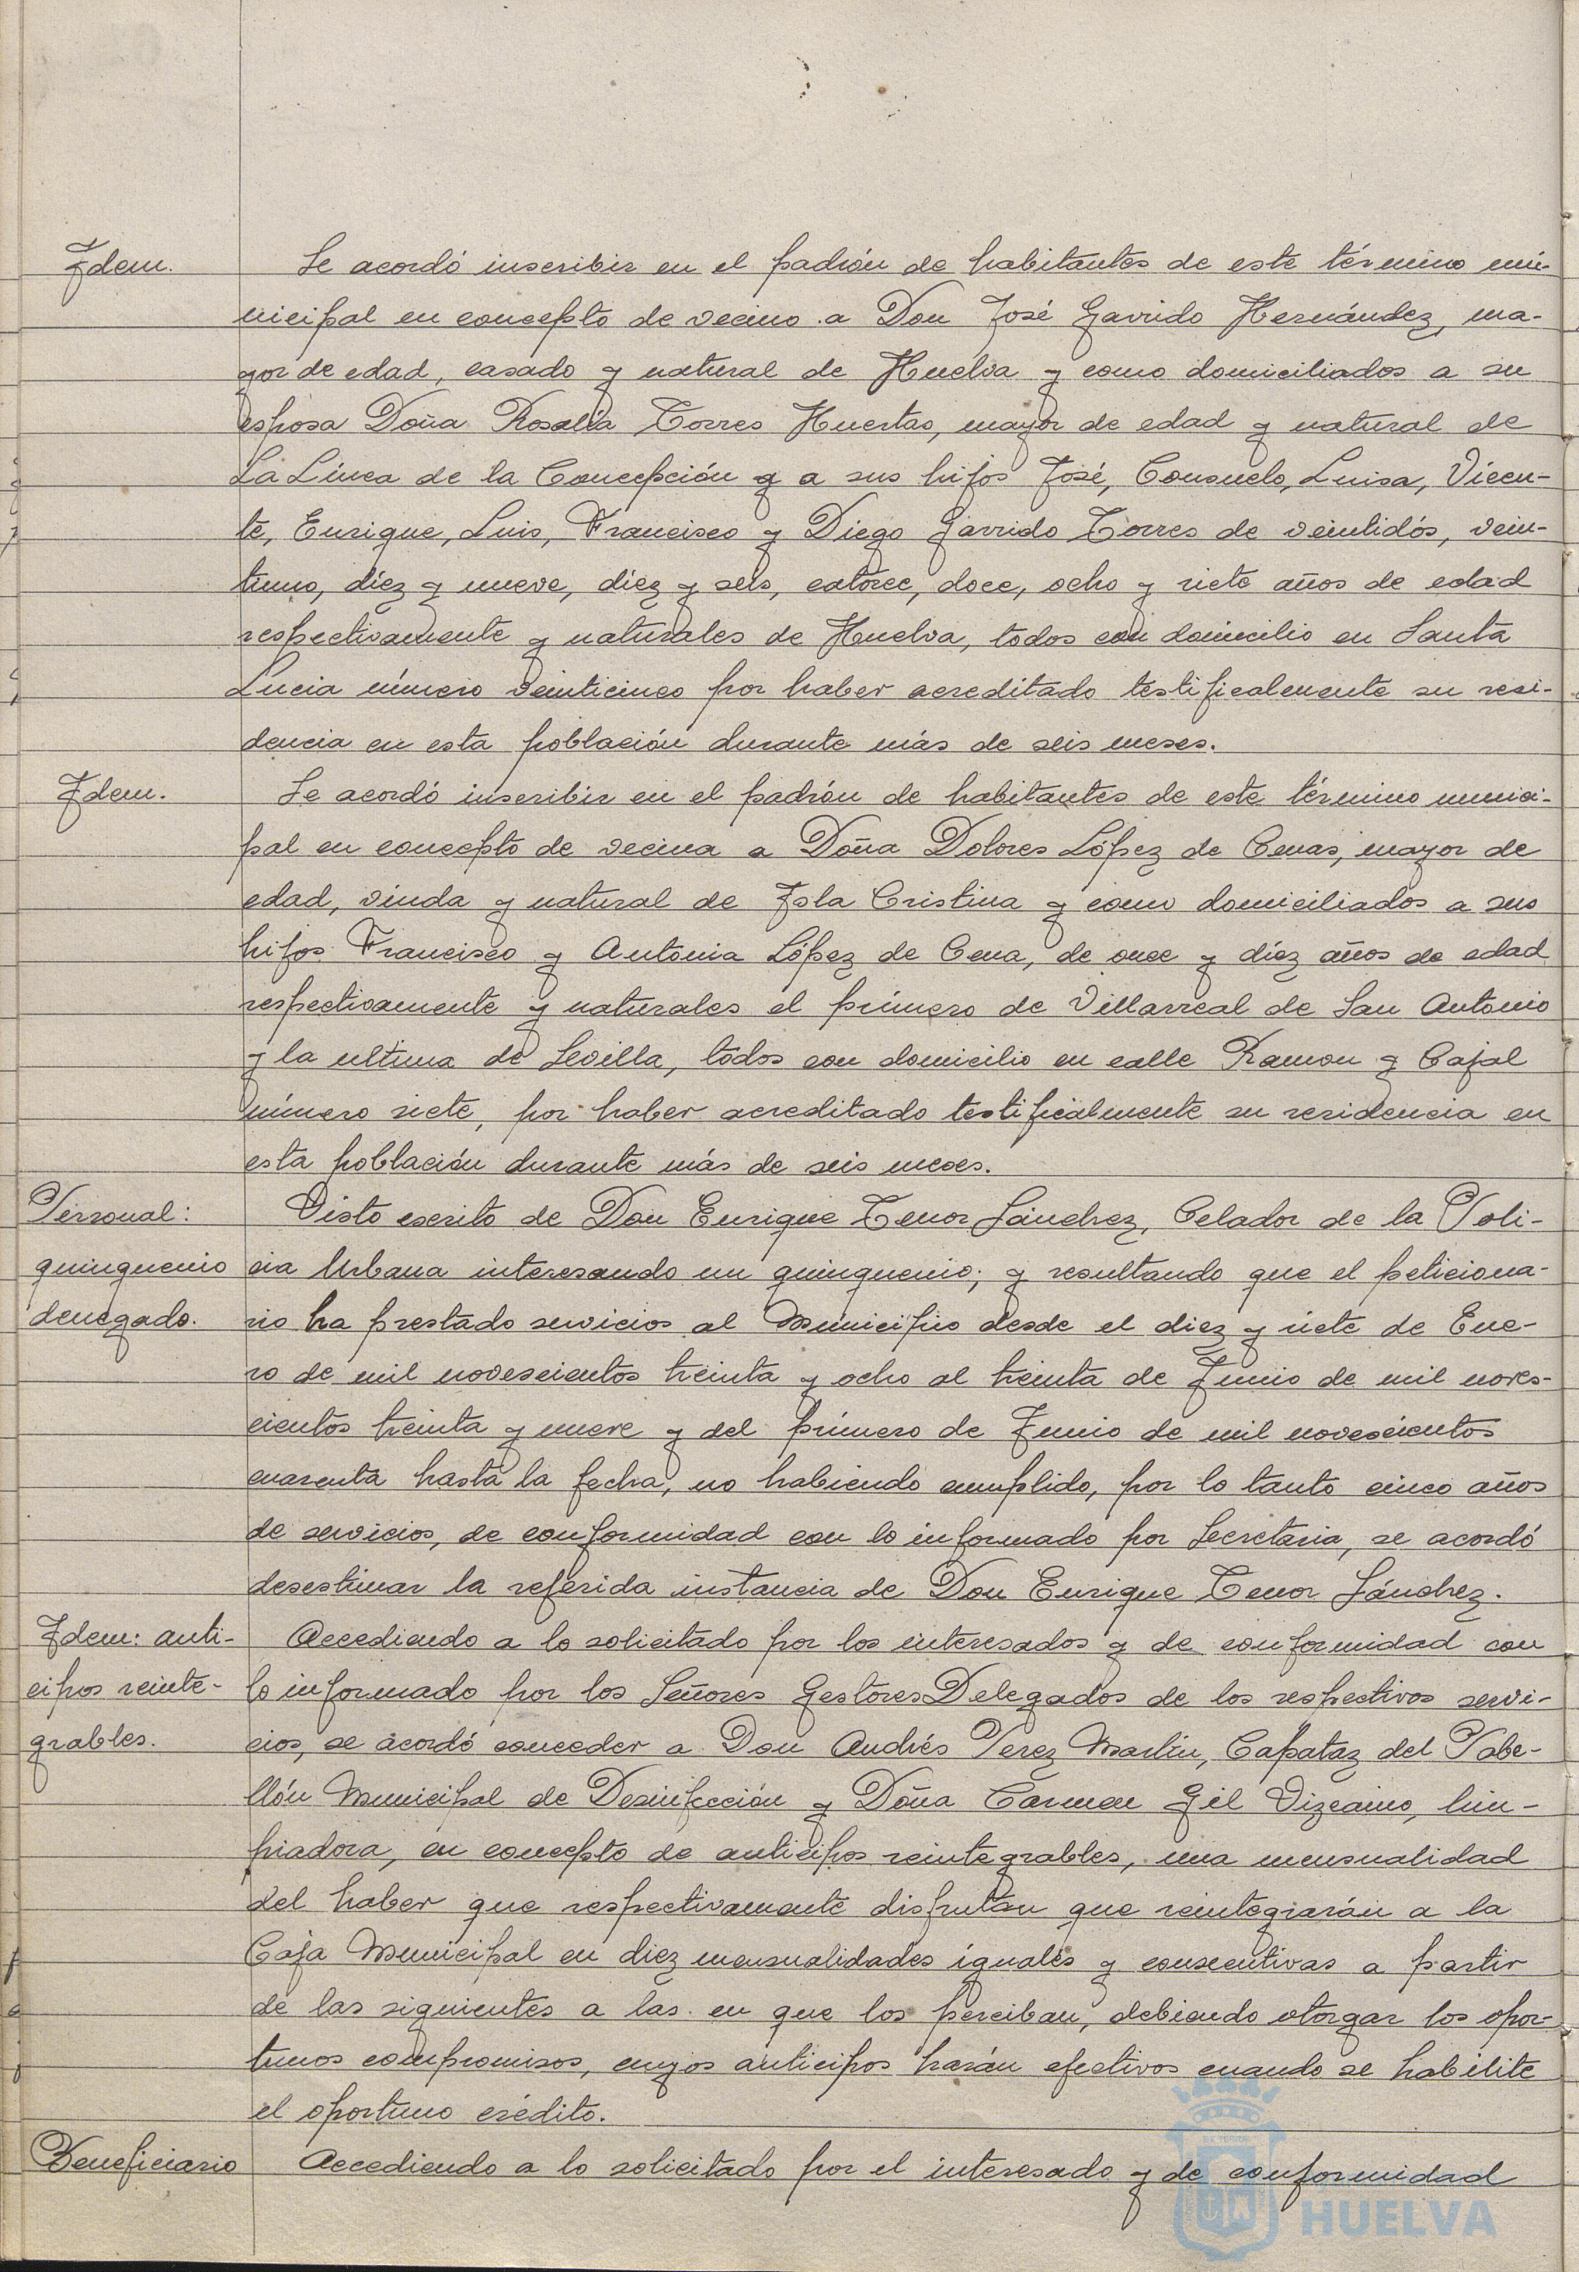 Idem.
Se acordó inscribir en el padrón de habitantes de este término mu-
nicipal en concepto de vecino a Don José Garrido Hernández, ma-
yor de edad, casado y natural de Huelva y como domiciliados a su
esposa Doña Rosalía Torres Huertas, mayor de edad y natural de
La Línea de la Concepción y a sus hijos José, Consuelo, Luisa, Vicen-
te, Enrique, Luis, Francisco y Diego Garrido Torres de veintidós, vein-
tiuno, diez y nueve, diez y seis, catorce, doce, ocho y siete años de edad
respectivamente y naturales de Huelva, todos con domicilio en Santa
Lucia número veinticinco por haber acreditado testificalmente su resi-
dencia en esta población durante más de seis meses.
Idem.
Se acordó inscribir en el padrón de habitantes de este término munici-
pal en concepto de vecina a Doña Dolores López de Cenas, mayor de
edad, viuda y natural de Isla Cristina y como domiciliados a sus
hijos Francisco y Antonia López de Cena, de once y diez años de edad
respectivamente y naturales el primero de Villarreal de San Antonio
y la ultima de Sevilla, todos con domicilio en calle Ramon y Cajal
número siete, por haber acreditado testificalmente su residencia en
esta población durante más de seis meses.
Personal:
quinquenio
denegado.
Visto escrito de Don Enrique Tenor Sánchez, Celador de la Poli-
cia Urbana interesando un quinquenio; y resultando que el peticiona-
rio ha prestado servicios al Municipio desde el diez y siete de Ene-
ro de mil novescientos treinta y ocho al treinta de Junio de mil noves-
cientos treinta y nueve y del primero de Junio de mil novescientos
cuarenta hasta la fecha, no habiendo cumplido, por lo tanto cinco años
de servicios, de conformidad con lo informado por Secretaria, se acordó
desestimar la referida instancia de Don Enrique Tenor Sánchez.
Idem: anti-
cipos reinte-
grables.
Accediendo a lo solicitado por los interesados y de conformidad con
lo informado por los Señores Gestores Delegados de los respectivos servi-
cios, se acordó conceder a Don Andrés Perez Martin, Capataz del Pabe-
llón Municipal de Desinfección y Doña Carmen Gil Vizcaino, lim-
piadora, en concepto de anticipos reintegrables, una mensualidad
del haber que respectivamente disfrutan que reintegrarán a la
Caja Municipal en diez mensualidades iguales y consecutivas a partir
de las siguientes a las en que los perciban, debiendo otorgar los opor-
tunos compromisos, cuyos anticipos harán efectivos cuando se habilite
el oportuno crédito.
Beneficiario
Accediendo a lo solicitado por el interesado y de conformidad
HUELVA